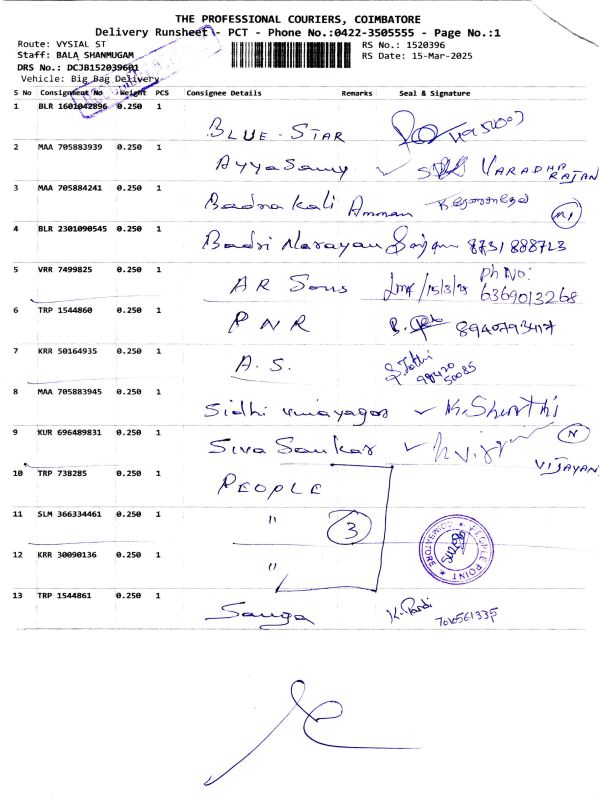 THE PROFESSIONAL COURIERS, COIMBATORE
Delivery Runsheet - PCT - Phone No.:0422-3505555 - Page No.:1
Route: VYSIAL ST RS No.: 1520396
Staff: BALA SHANMUGAM RS Date: 15-Mar-2025
DRS No.: DCJB152039601
Vehicle: Big Bag Delivery
S No Consignment No Weight PCS Consignee Details Remarks Seal & Signature
1 BLR 1601042896 0.250 1 BLUE-STAR
2 MAA 705883939 0.250 1 Ayyasamy VARADHA RAJAN
3 MAA 705884241 0.250 1 Badra Kali Amman
4 BLR 2301090545 0.250 1 Badri Narayan 8731888723
5 VRR 7499825 0.250 1 AR Sons /15/3/25 Ph No: 6369013268
6 TRP 1544860 0.250 1 PNR 8940793417
7 KRR 50164935 0.250 1 A.S. 98420 50085
8 MAA 705883945 0.250 1 Sidhi vinayagar K. Shanthi
9 KUR 696489831 0.250 1 Siva Sankar N VIJAYAN
10 TRP 738285 0.250 1 PEOPLE
11 SLM 366334461 0.250 1 " 3
PEOPLE POINT * COIMBATORE *
12 KRR 30090136 0.250 1 "
13 TRP 1544861 0.250 1 Sanga K. Pandi